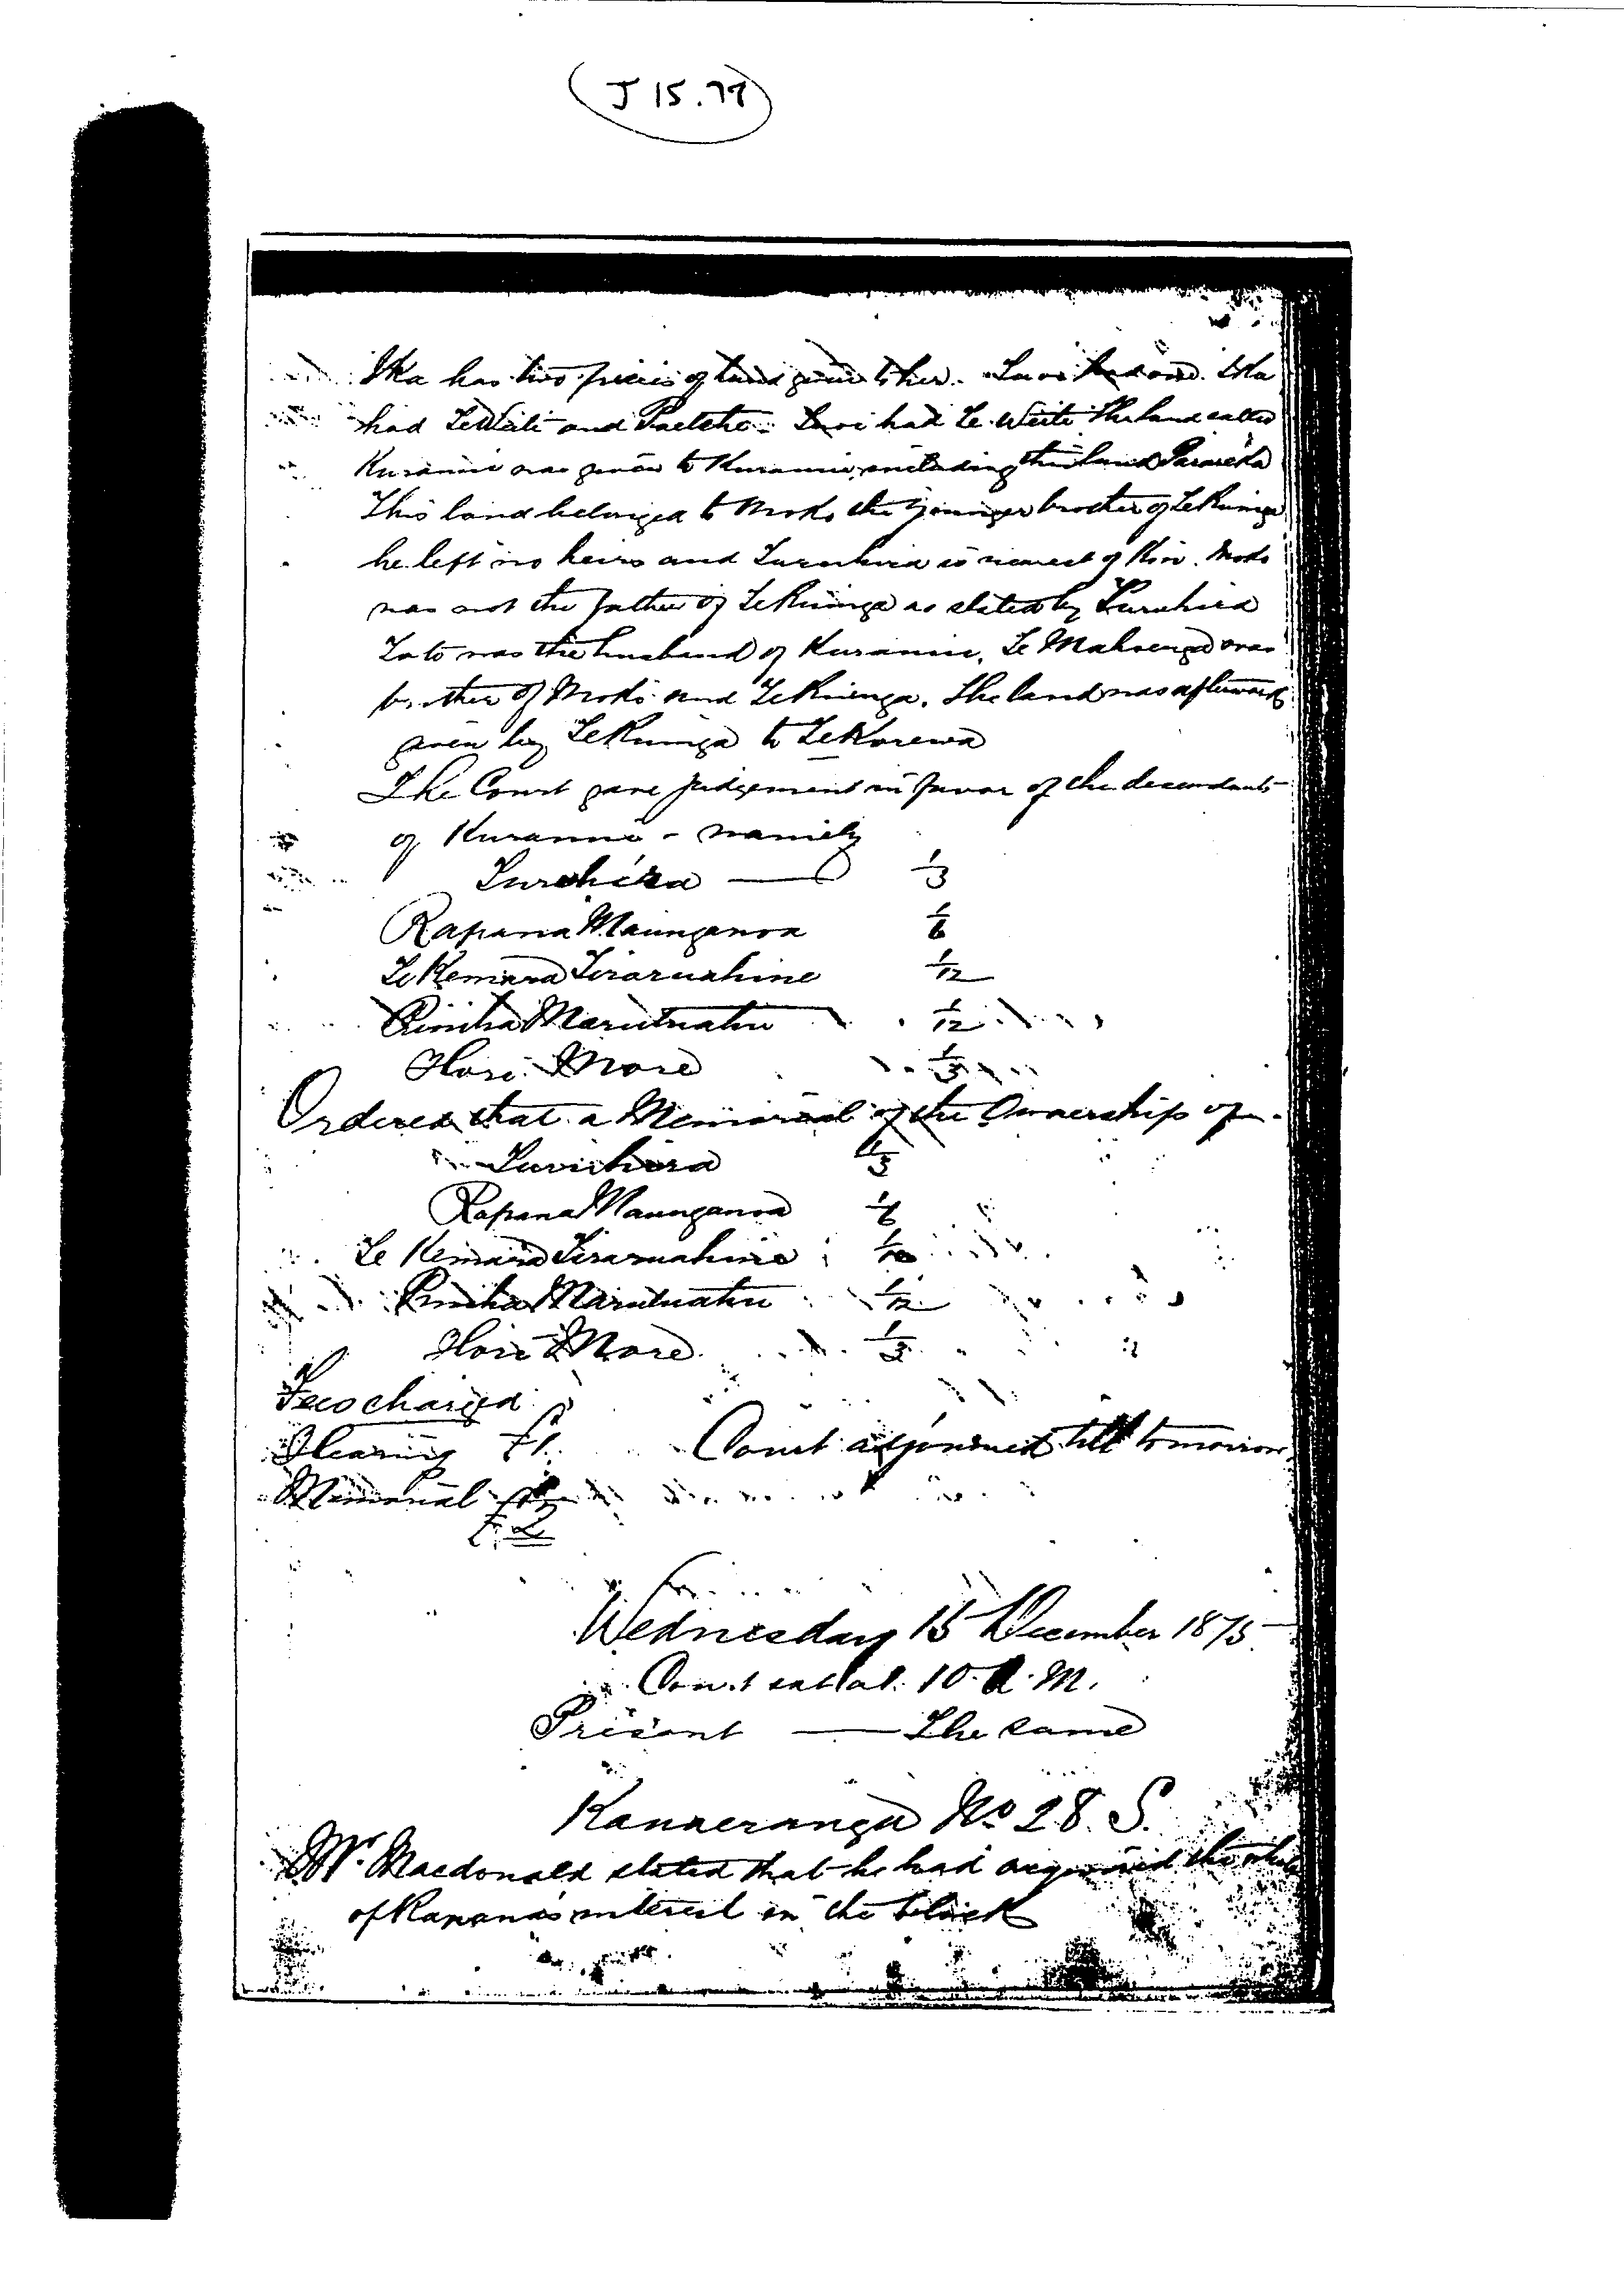 J 15.77
Ika has two pieces of land given to her. Tuoi had one. Ika
had Te Waiti and Paeteke. Tuoi had Te Weiti The land called
Kuranui was given to Kuranui, including this land Parareka
This land belonged to Moko the younger brother of Te Ruinga
he left no heirs and Turuhira is nearest of Kin. Moko
was not the father of Te Ruinga as stated by Turuhira
Tato was the husband of Kuranui. Te Mahoenga was
brother of Moko and Te Ruinga. The land was afterwards
given by Te Ruinga to Te Korewa
The Court gave judgement in favor of the descendants
of Kuranui - namely
Turuhira — 1/3
Rapana Maunganoa 1/6
Te Kemara Tiraruahine 1/12
Piniha Marutuahu 1/12
Hori More 1/3
Ordered that a Memorial of the Ownership of
Turuhira 1/3
Rapana Maunganoa 1/6
Te Kemara Tiraruahine 1/12
Piniha Marutuahu 1/12
Hori More 1/3
Fees charged
Hearing £1. Court adjourned till tomorrow
Memorial
£2
Wednesday 15 December 1875
Court sat at 10 A.M.
Present — The same
Kauaeranga No 28 S.
Mr. Macdonald stated that he had acquired the whole
of Rapana's interest in the block